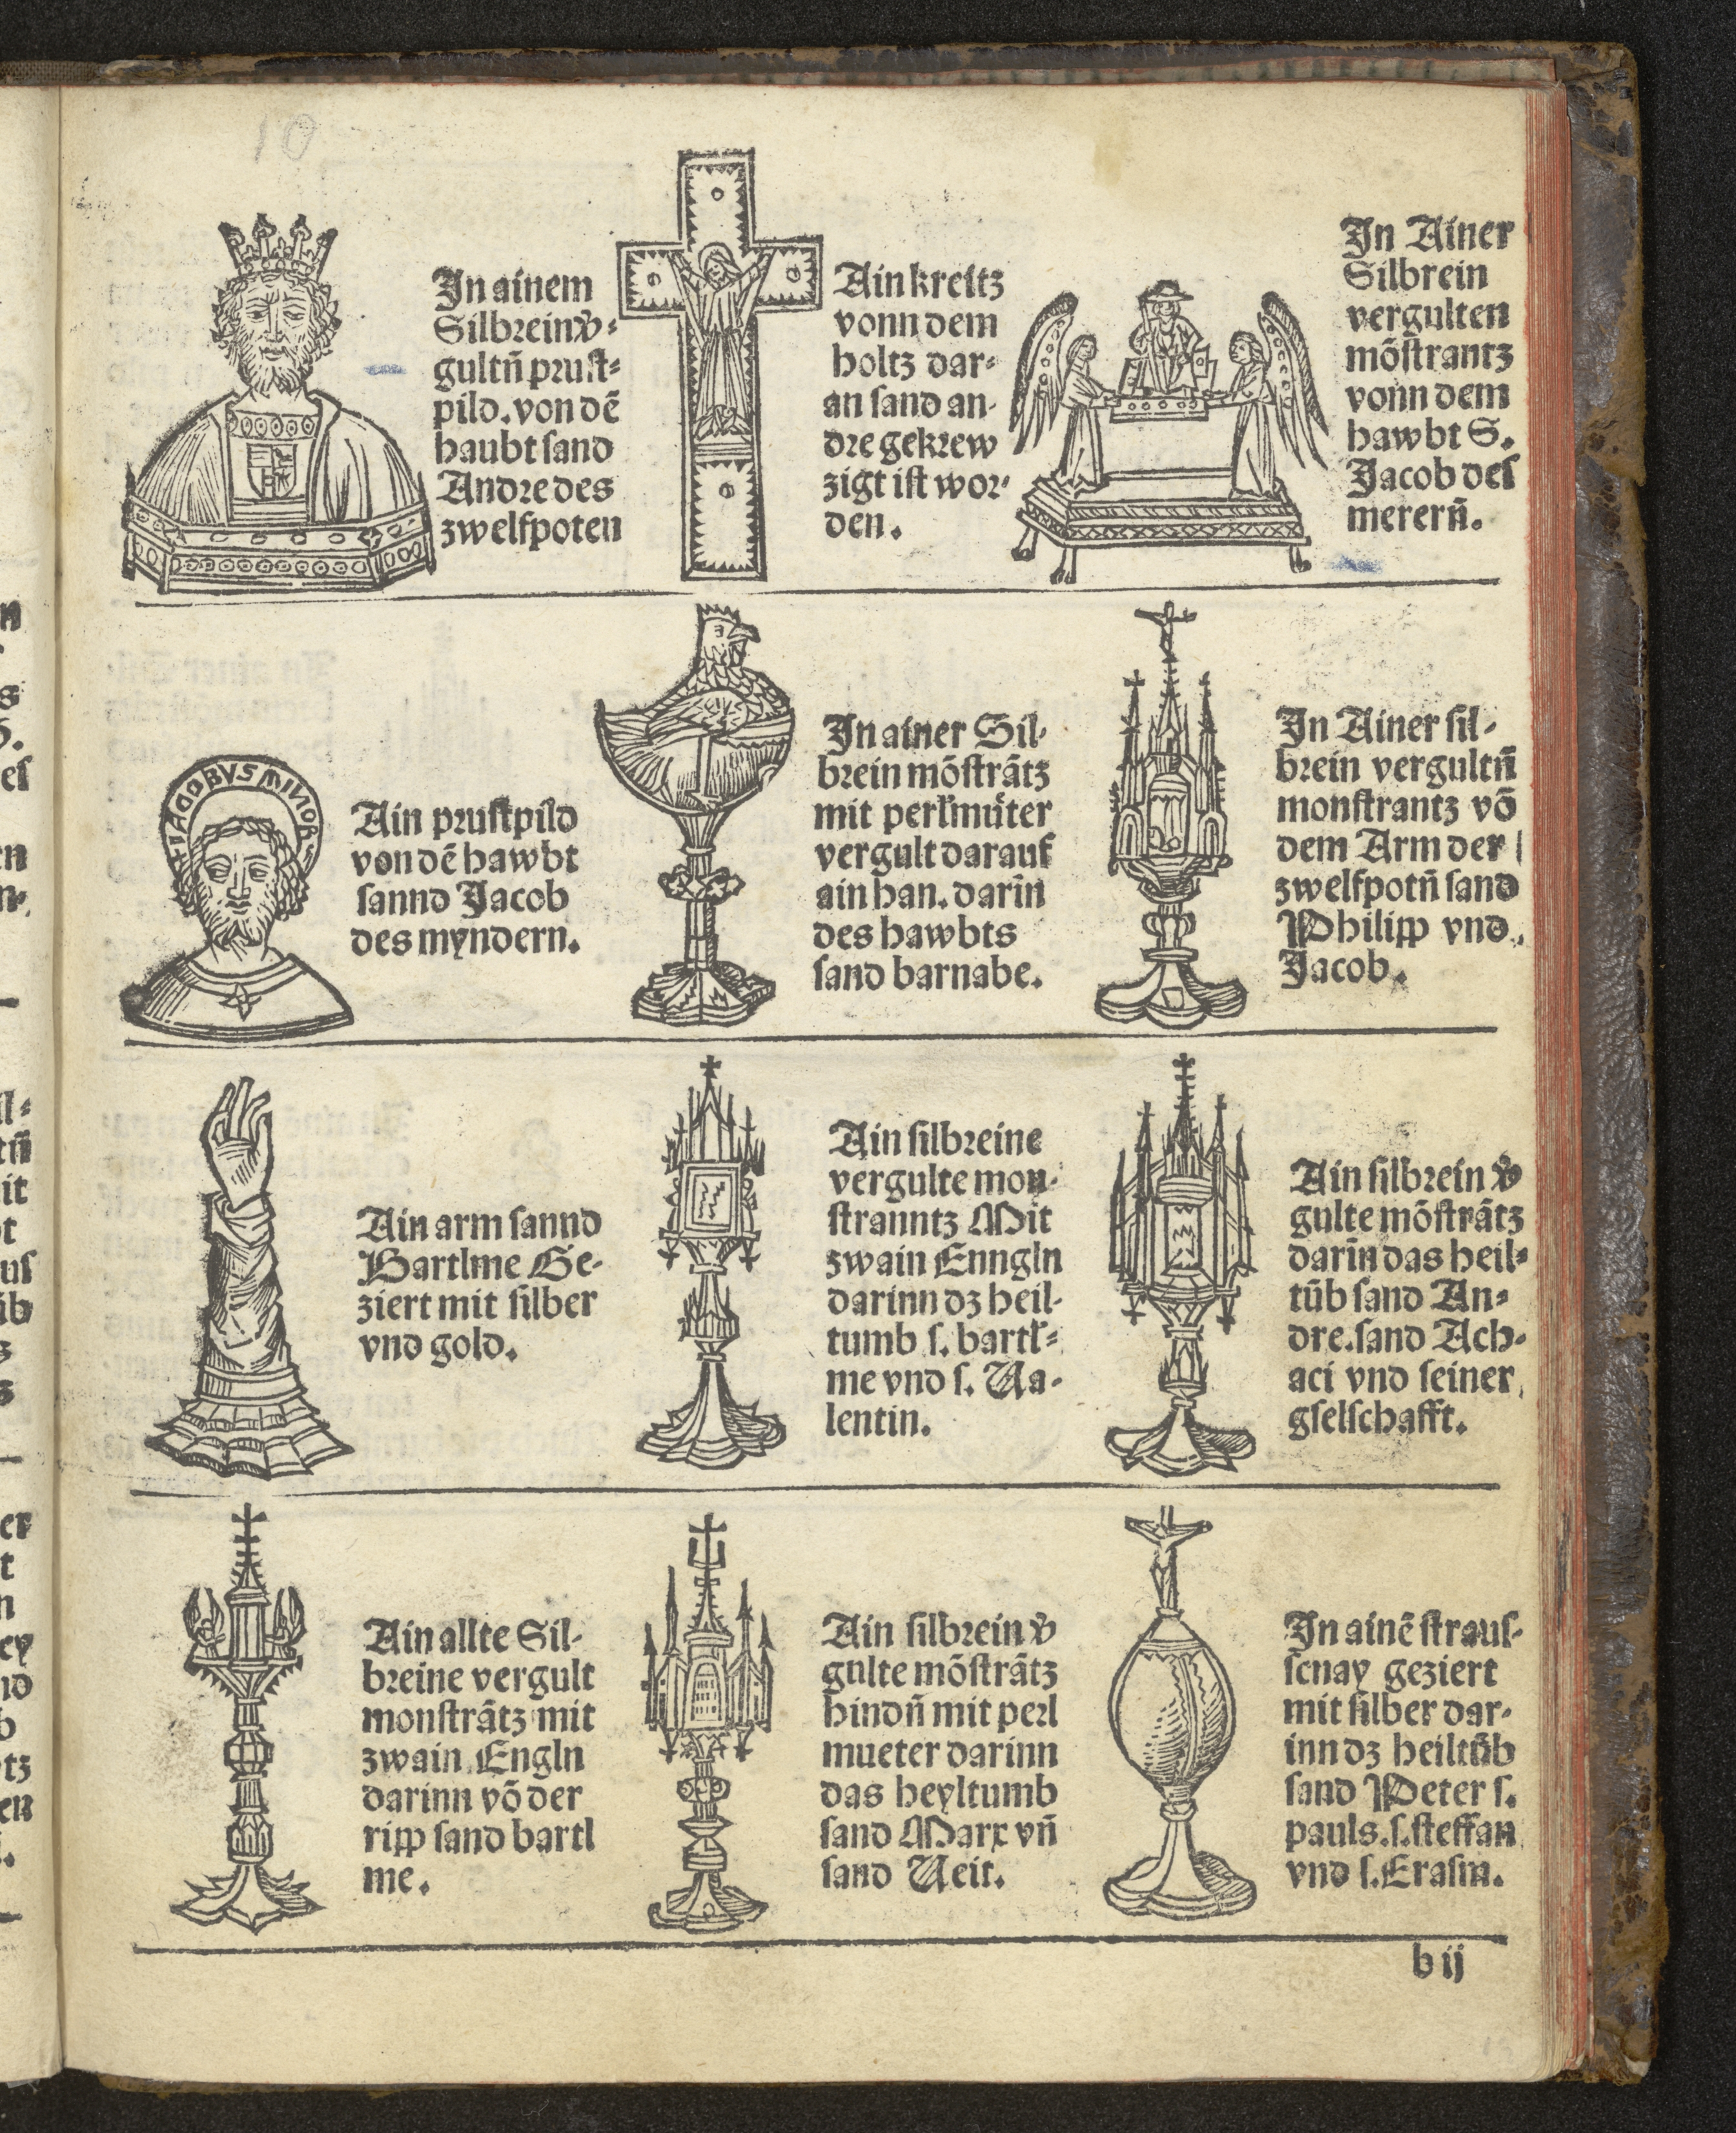 10
In ainem
Silbrein v̄-
gultn̄ prust-
pild. von dē
haubt sand
Andre des
zwelfpoten
Ain kreitz
vonn dem
holtz dar-
an sand an-
dre gekrew
zigt ist wor-
den.
In Ainer
Silbrein
vergulten
mōstrantz
vonn dem
hawbt S.
Jacob des
merern̄.
IACOBVS MINOR
Ain prustpild
von dē hawbt
sannd Jacob
des myndern.
In ainer Sil-
brein mōstrātz
mit perlmuter
vergult darauf
ain han. darin̄
des hawbts
sand barnabe.
In Ainer sil-
brein vergultn̄
monstrantz vō
dem Arm der
zwelfpotn̄ sand
Philipp vnd
Jacob.
Ain arm sannd
Bartlme Ge-
ziert mit silber
vnd gold.
Ain silbreine
vergulte mon-
stranntz Mit
zwain Enngln
darinn dz heil-
tumb s. bartl-
me vnd s. Va-
lentin.
Ain silbrein v̄
gulte mōstrātz
darin̄ das heil-
tūb sand An-
dre. sand Ach-
aci vnd seiner
gselschafft.
Ain allte Sil-
breine vergult
monstrātz mit
zwain Engln
darinn vō der
ripp sand bartl
me.
Ain silbrein v̄
gulte mōstrātz
hindn̄ mit perl
mueter darinn
das heyltumb
sand Marx vn̄
sand Veit.
In ainē straus-
scnay geziert
mit silber dar-
inn dz heiltūb
sand Peter s.
pauls. s. steffan
vnd s. Erasm.
b ij